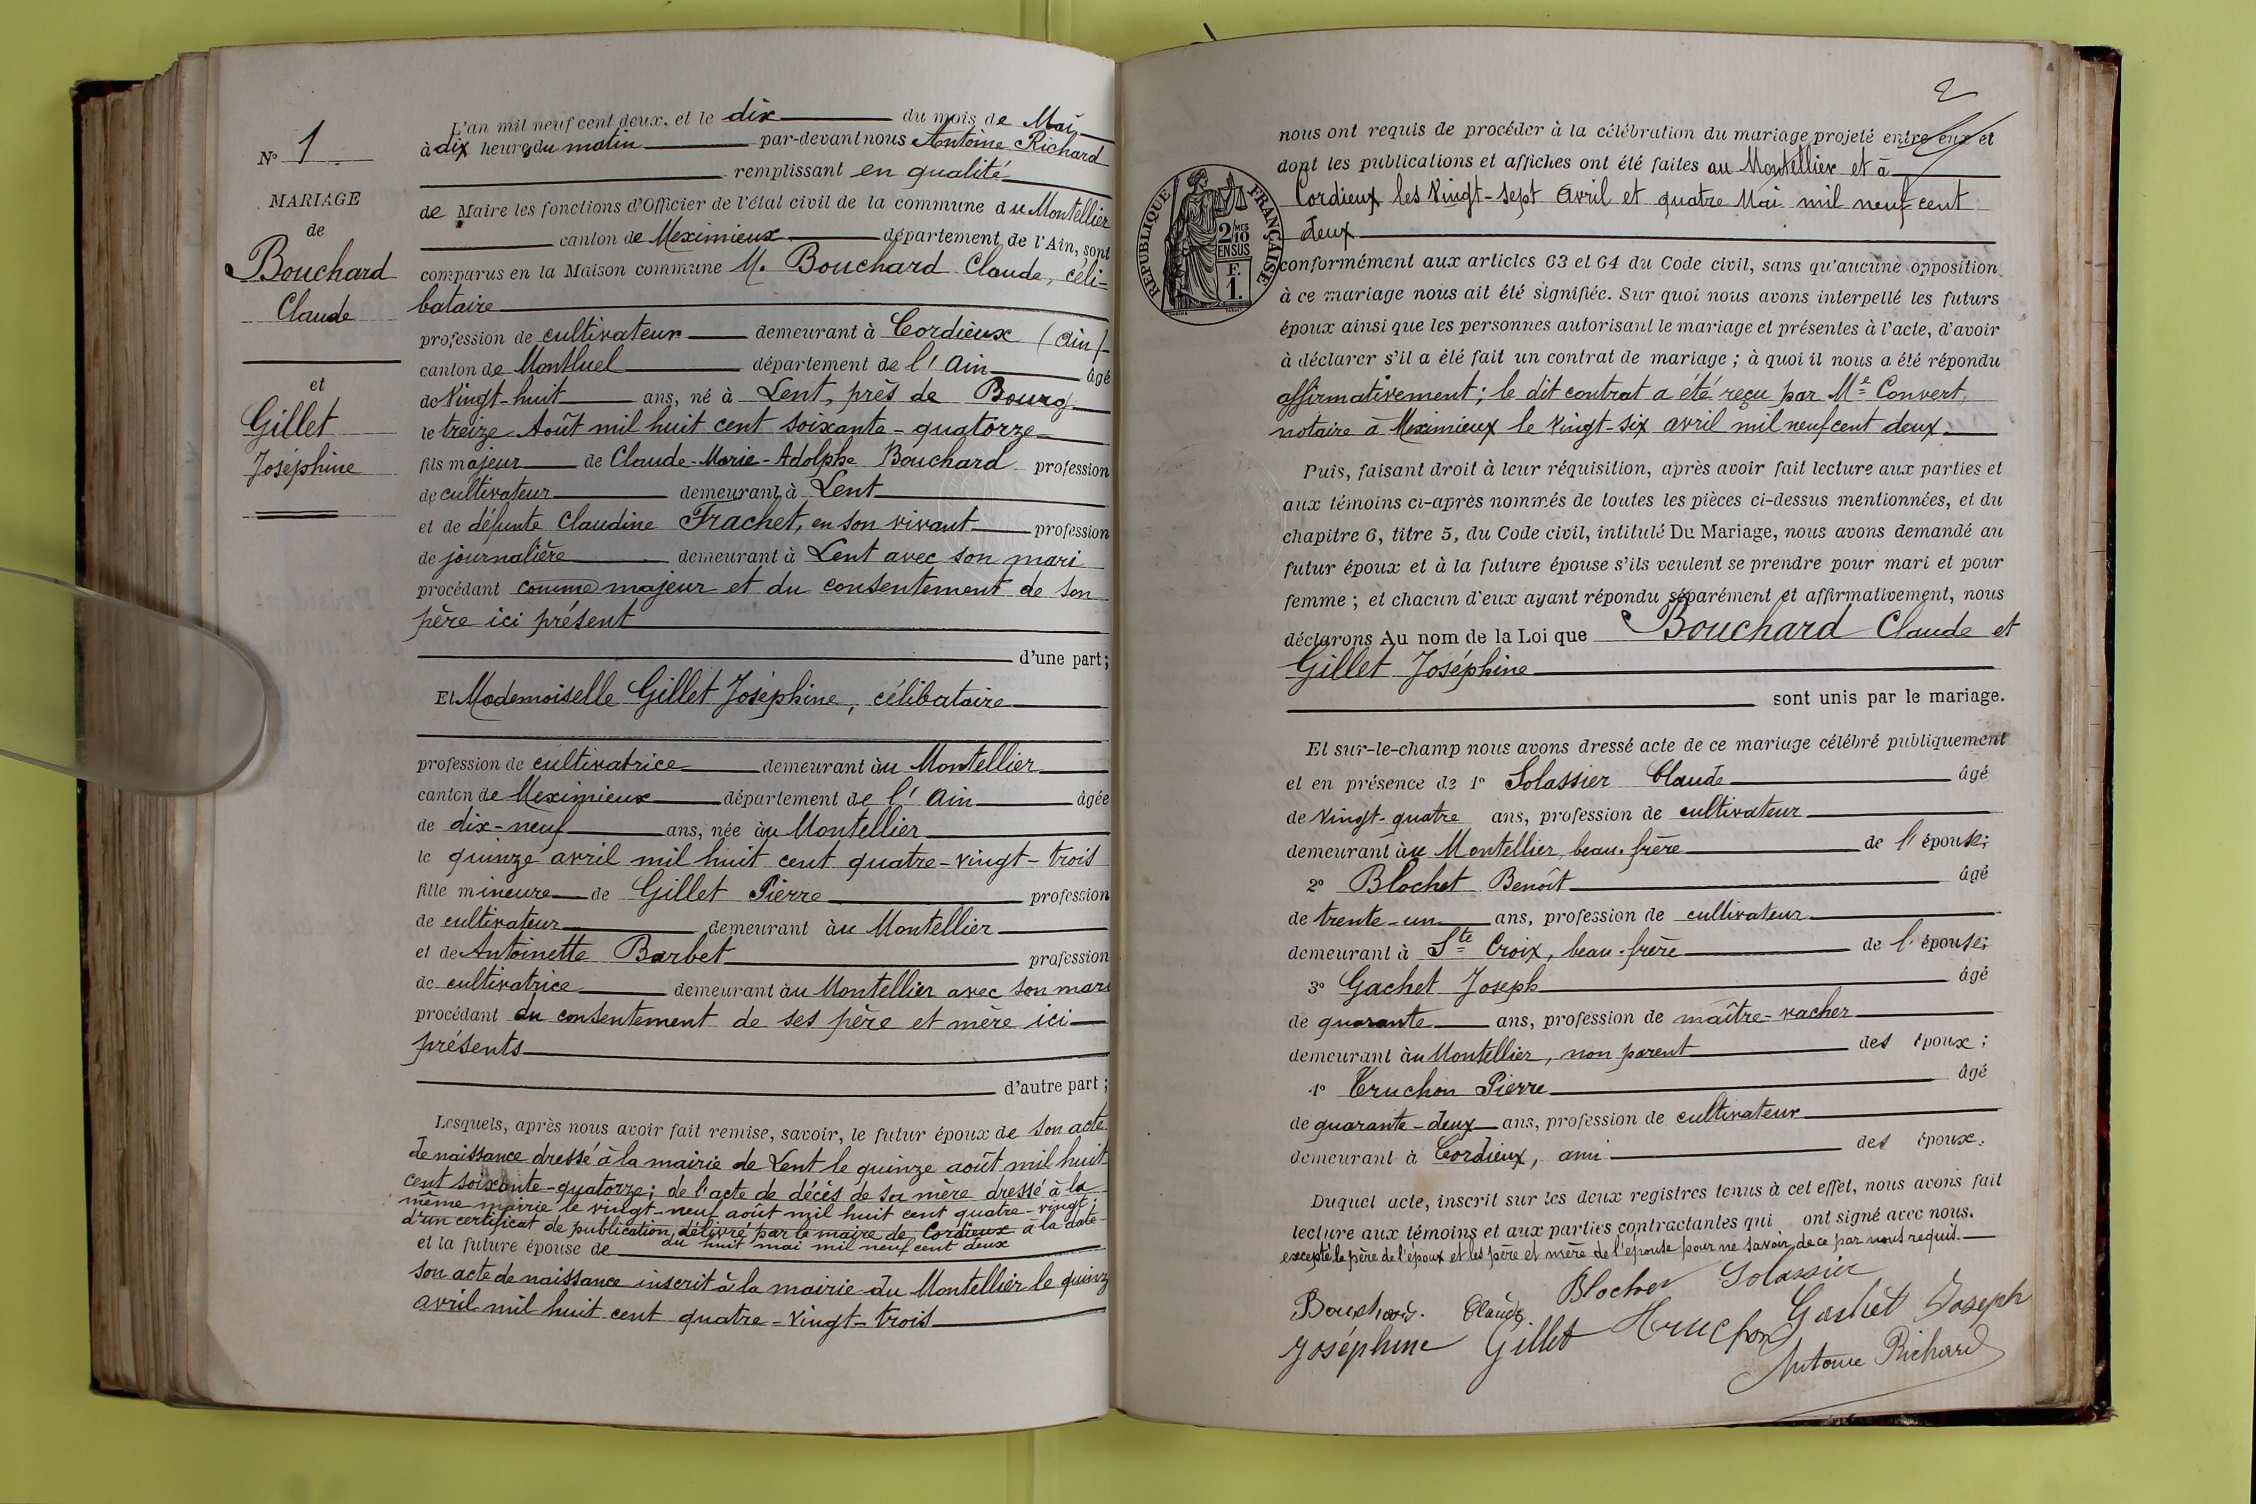 L'an mil neuf cent deux, et le dix du mois de Mai
à dix heures du matin par-devant nous Antoine Richard
N° 1
remplissant en qualité
MARIAGE
de Maire les fonctions d'Officier de l'état civil de la commune du Montellier
de
canton de Meximieux département de l'Ain, sont
Bouchard
comparus en la Maison commune M. Bouchard Claude, céli-
Claude
bataire
profession de cultivateur demeurant à Cordieux (Ain)
canton de Montluel département de l'Ain âgé
et
de vingt-huit ans, né à Lent, près de Bourg
Gillet
le treize Août mil huit cent soixante-quatorze
Joséphine
fils majeur de Claude-Marie-Adolphe Bouchard profession
de cultivateur demeurant à Lent
et de défunte Claudine Frachet, en son vivant profession
de journalière demeurant à Lent avec son mari
procédant comme majeur et du consentement de son
père ici présent
d'une part;
Et Mademoiselle Gillet Joséphine, célibataire
profession de cultivatrice demeurant au Montellier
canton de Meximieux département de l'Ain âgée
de dix-neuf ans, née au Montellier
le quinze avril mil huit cent quatre-vingt-trois
fille mineure de Gillet Pierre profession
de cultivateur demeurant au Montellier
et de Antoinette Barbet profession
de cultivatrice demeurant au Montellier avec son mari
procédant du consentement de ses père et mère ici
présents
d'autre part;
Lesquels, après nous avoir fait remise, savoir, le futur époux de son acte
de naissance dressé à la mairie de Lent le quinze août mil huit
cent soixante-quatorze; de l'acte de décès de sa mère dressé à la
même mairie le vingt-neuf août mil huit cent quatre-vingt;
d'un certificat de publication délivré par le maire de Cordieux à la date
du huit mai mil neuf cent deux
et la future épouse de
son acte de naissance inscrit à la mairie du Montellier le quinz
avril mil huit cent quatre-vingt-trois
2
nous ont requis de procéder à la célébration du mariage projeté entre eux et
dont les publications et affiches ont été faites au Montellier et à
Cordieux les vingt-sept avril et quatre Mai mil neuf cent
deux
RÉPUBLIQUE FRANÇAISE
2/10 MES
EN SUS
F.
1.
conformément aux articles 63 et 64 du Code civil, sans qu'aucune opposition
à ce mariage nous ait été signifiée. Sur quoi nous avons interpellé les futurs
époux ainsi que les personnes autorisant le mariage et présentes à l'acte, d'avoir
à déclarer s'il a été fait un contrat de mariage; à quoi il nous a été répondu
affirmativement; le dit contrat a été reçu par Me Convert,
notaire à Meximieux le vingt-six avril mil neuf cent deux.
Puis, faisant droit à leur réquisition, après avoir fait lecture aux parties et
aux témoins ci-après nommés de toutes les pièces ci-dessus mentionnées, et du
chapitre 6, titre 5, du Code civil, intitulé Du Mariage, nous avons demandé au
futur époux et à la future épouse s'ils veulent se prendre pour mari et pour
femme; et chacun d'eux ayant répondu séparément et affirmativement, nous
déclarons Au nom de la Loi que Bouchard Claude et
Gillet Joséphine
sont unis par le mariage.
Et sur-le-champ nous avons dressé acte de ce mariage célébré publiquement
et en présence de 1° Solassier Claude âgé
de vingt-quatre ans, profession de cultivateur
demeurant au Montellier, beau-frère de l'épouse;
2° Blochet Benoît âgé
de trente-un ans, profession de cultivateur
demeurant à Ste Croix, beau-frère de l'épouse;
3° Gachet Joseph âgé
de quarante ans, profession de maître-vacher
demeurant au Montellier, non parent des époux;
4° Truchon Pierre âgé
de quarante-deux ans, profession de cultivateur
demeurant à Cordieux, ami des époux.
Duquel acte, inscrit sur les deux registres tenus à cet effet, nous avons fait
lecture aux témoins et aux parties contractantes qui ont signé avec nous.
excepté le père de l'époux et les père et mère de l'épouse pour ne savoir, de ce par nous requis.
Blochet Solassier
Bouchard. Claude. Gachet Joseph
Joséphine Gillet Truchon
Antoine Richard